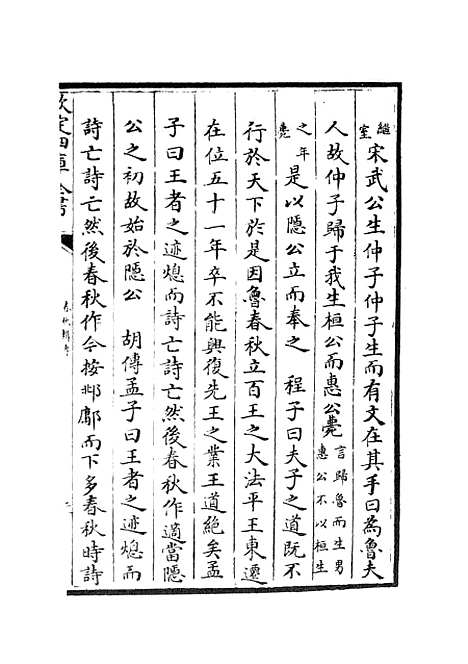 繼室宋武公生仲子仲子生而有文在其手曰為魯夫
人故仲子歸于我生桓公而惠公薨言歸魯而生男惠公不以桓生
之年薨是以隱公立而奉之 程子曰夫子之道既不
行於天下於是因魯春秋立百王之大法平王東遷
在位五十一年卒不能興復先王之業王道絶矣孟
子曰王者之迹熄而詩亡詩亡然後春秋作適當隱
公之初故始於隱公 胡傳孟子曰王者之迹熄而
詩亡詩亡然後春秋作今按邶鄘而下多春秋時詩
欽定四庫全書